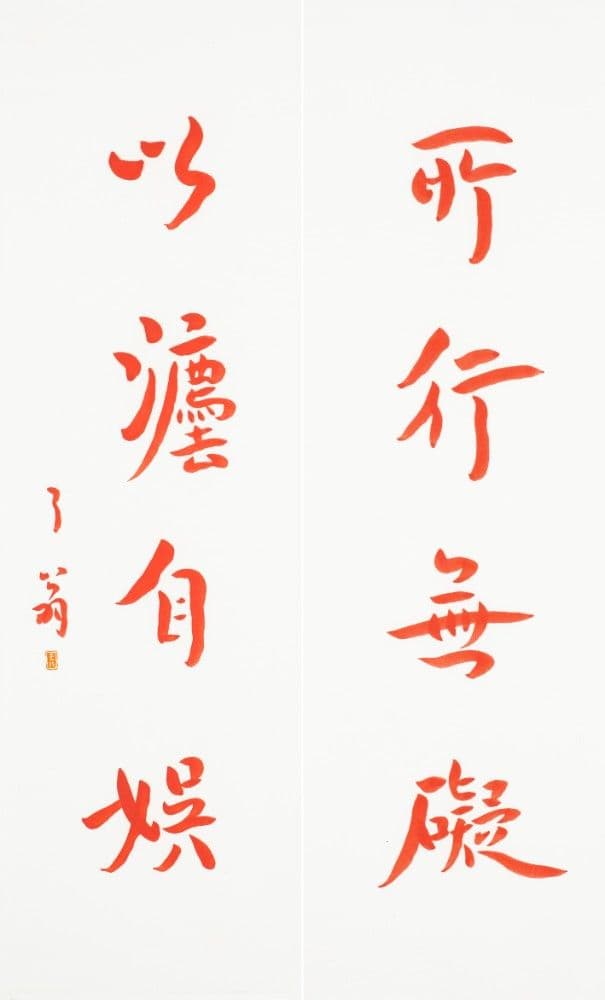 所行無礙
以灋自娛
了翁